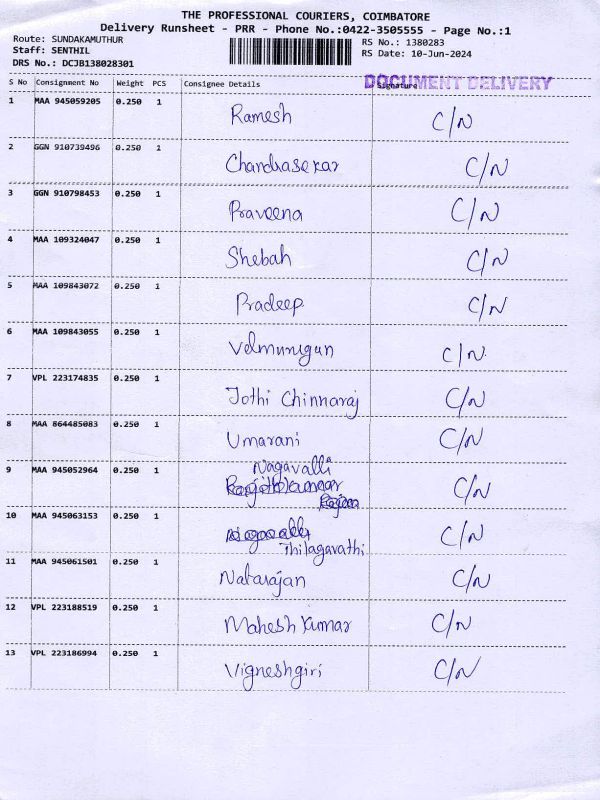 THE PROFESSIONAL COURIERS, COIMBATORE
Delivery Runsheet - PRR - Phone No.:0422-3505555 - Page No.:1
Route: SUNDAKAMUTHUR RS No.: 1380283
Staff: SENTHIL RS Date: 10-Jun-2024
DRS No.: DCJB138028301
DOCUMENT DELIVERY
S No Consignment No Weight PCS Consignee Details Signature
1 MAA 945059205 0.250 1 Ramesh C/N
2 GGN 910739496 0.250 1 Chandrasekar C/N
3 GGN 910798453 0.250 1 Praveena C/N
4 MAA 109324047 0.250 1 Shebah C/N
5 MAA 109843072 0.250 1 Pradeep C/N
6 MAA 109843055 0.250 1 Velmurugan C/N
7 VPL 223174835 0.250 1 Jothi Chinnaraj C/N
8 MAA 864485083 0.250 1 Umarani C/N
9 MAA 945052964 0.250 1 Nagavalli C/N
10 MAA 945063153 0.250 1 Thilagavathi C/N
11 MAA 945061501 0.250 1 Natarajan C/N
12 VPL 223188519 0.250 1 Mahesh Kumar C/N
13 VPL 223186994 0.250 1 Vigneshgiri C/N